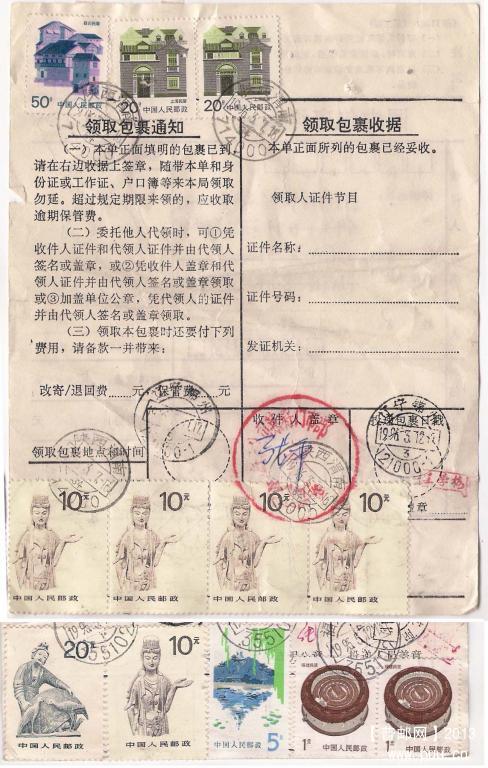 50分 中国人民邮政
20分 中国人民邮政
20分 中国人民邮政
领取包裹通知
(一)本单正面填明的包裹已到,
请在右边收据上签章,随带本单和身
份证或工作证、户口簿等来本局领取
勿延。超过规定期限来领的,应收取
逾期保管费。
(二)委托他人代领时,可①凭
收件人证件和代领人证件并由代领人
签名或盖章,或②凭收件人盖章和代
领人证件并由代领人签名或盖章领取
或③加盖单位公章,凭代领人的证件
并由代领人签名或盖章领取。
(三)领取本包裹时还要付下列
费用,请备款一并带来:
改寄/退回费……元,保管费……元
领取包裹收据
本单正面所列的包裹已经妥收。
领取人证件节目
证件名称:
证件号码:
发证机关:
领取包裹地点和时间
收件人盖章
投递包裹日戳
10元
10元
10元
10元
中国人民邮政
中国人民邮政
中国人民邮政
中国人民邮政
20元
中国人民邮政
10元
中国人民邮政
5元
中国人民邮政
福建民居
1元
中国人民邮政
福建民居
1元
中国人民邮政